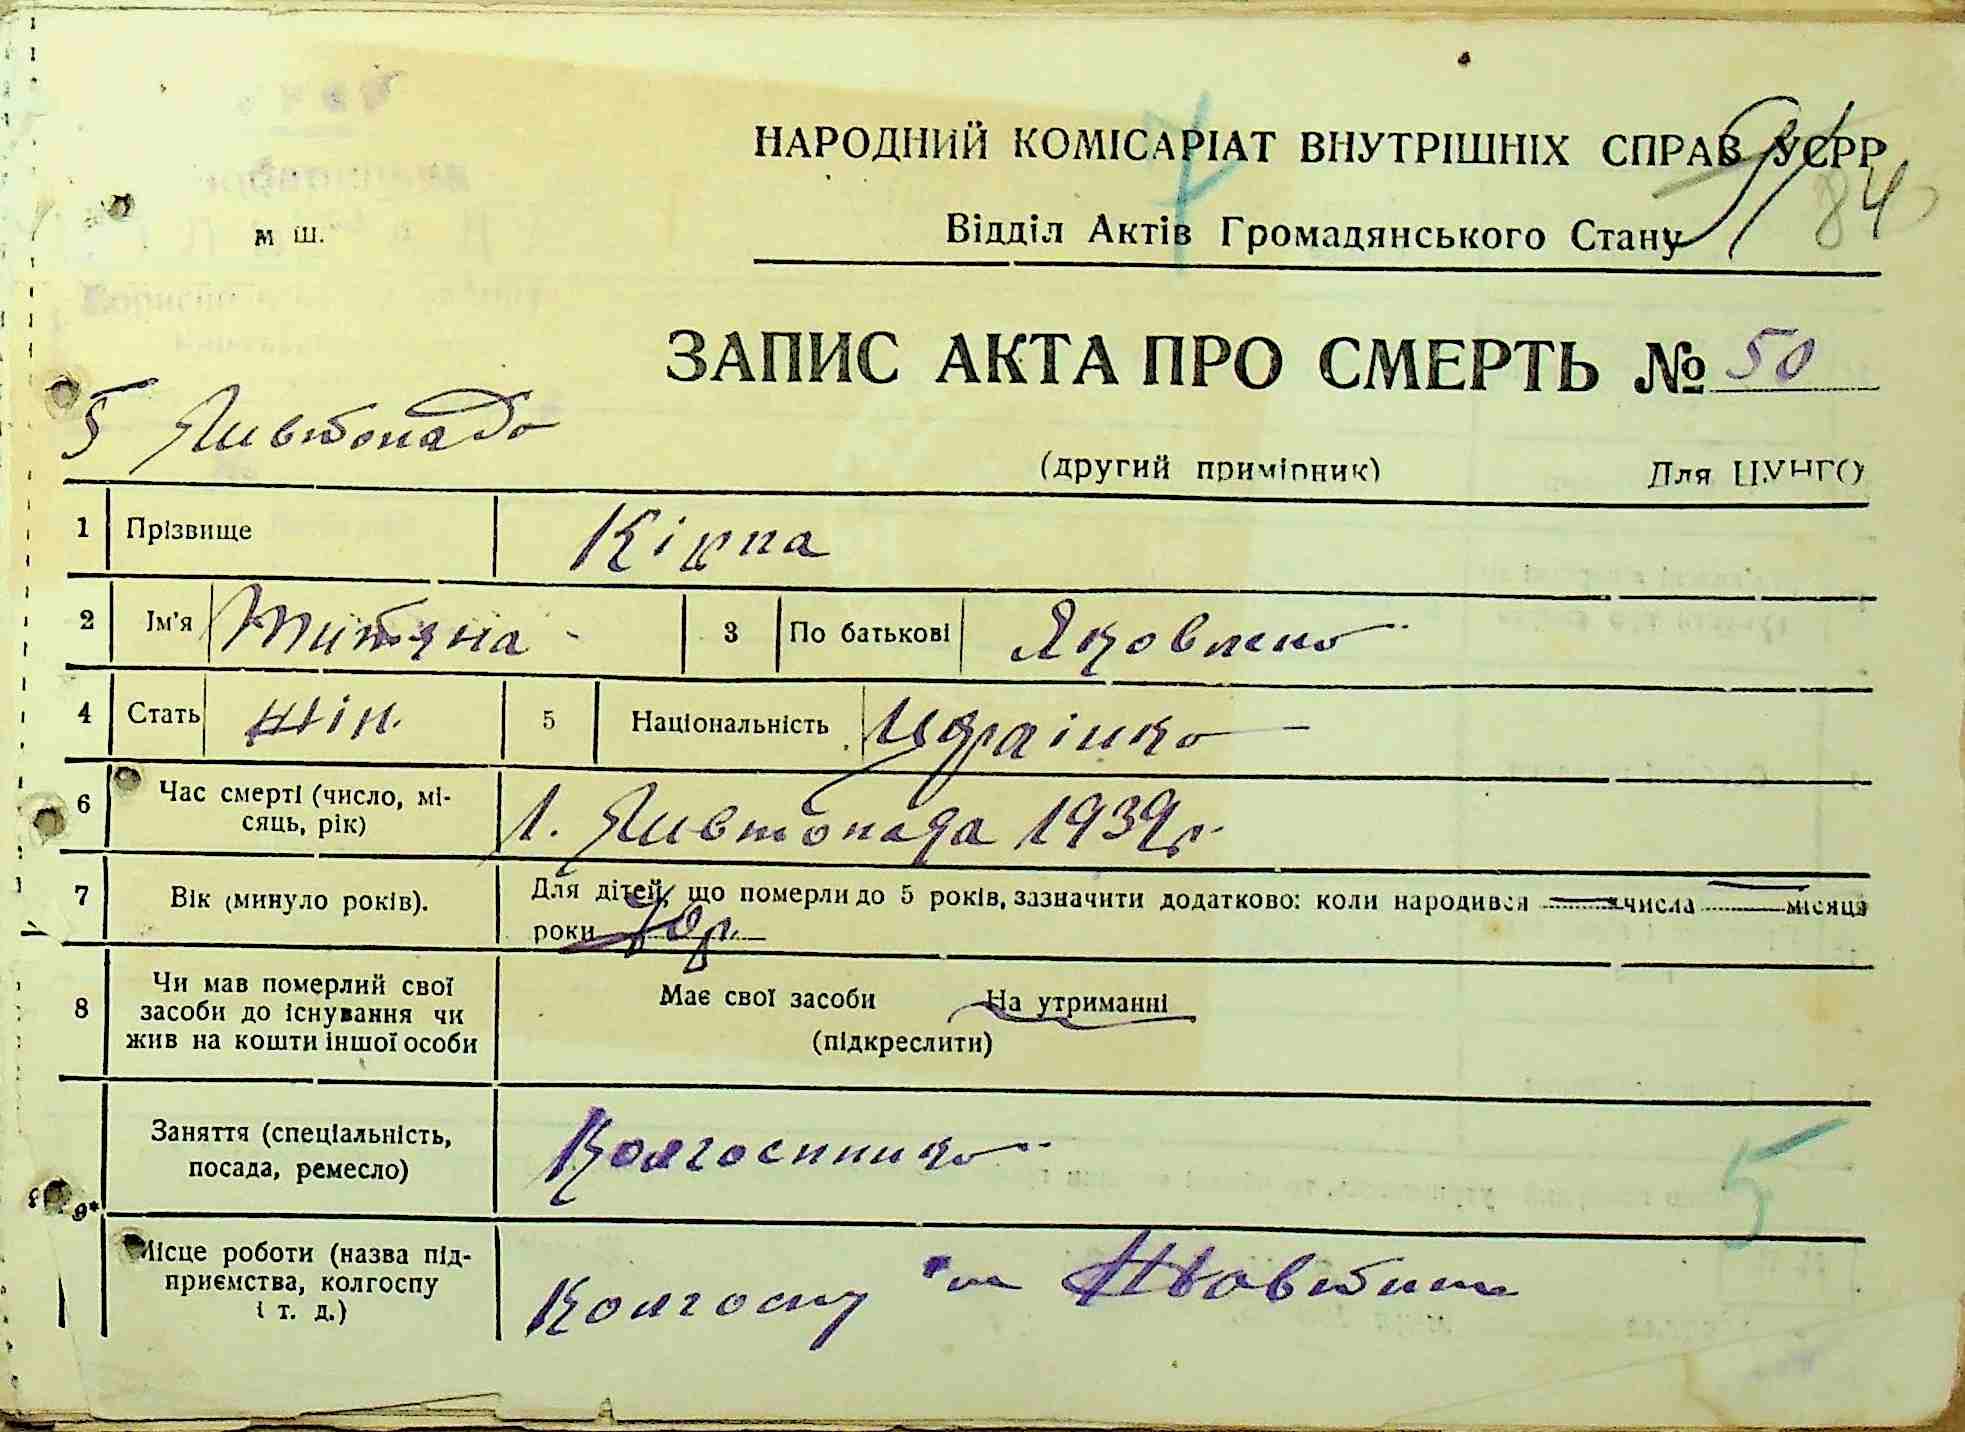 НАРОДНИЙ КОМІСАРІАТ ВНУТРІШНІХ СПРАВ УСРР
91
84
м ш.
Відділ Актів Громадянського Стану
ЗАПИС АКТА ПРО СМЕРТЬ № 50
5 Листопада
(другий примірник) Для ЦУНГО
1 Прізвище Кірпа
2 Ім'я 3 По батькові Яковлена
4 Стать жін. 5 Національність Українка
6 Час смерті (число, мі-
сяць, рік) 1. Листопада 1939р.
7 Вік (минуло років). Для дітей, що померли до 5 років, зазначити додатково: коли народився числа місяця
роки 70р.
8 Чи мав померлий свої
засоби до існування чи
жив на кошти іншої особи
Має свої засоби На утриманні
(підкреслити)
Заняття (спеціальність,
посада, ремесло) Колгоспника
5
9*
Місце роботи (назва під-
приємства, колгоспу
і т. д.) Колгоспу